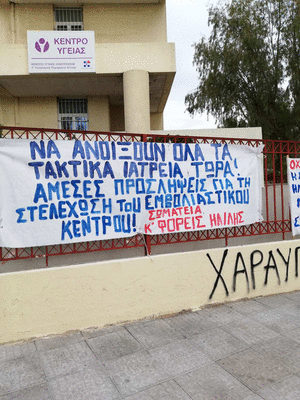 ΚΕΝΤΡΟ
ΥΓΕΙΑΣ
ΝΑ ΑΝΟΙΞΟΥΝ ΟΛΑ ΤΑ
ΤΑΚΤΙΚΑ ΙΑΤΡΕΙΑ, ΤΩΡΑ!
ΑΜΕΣΕΣ ΠΡΟΣΛΗΨΕΙΣ ΓΙΑ ΤΗ
ΣΤΕΛΕΧΩΣΗ ΤΟΥ ΕΜΒΟΛΙΑΣΤΙΚΟΥ
ΚΕΝΤΡΟΥ!!
ΣΩΜΑΤΕΙΑ
Κ' ΦΟΡΕΙΣ ΗΛΙΔΗΣ
ΧΑΡΑΥΓ